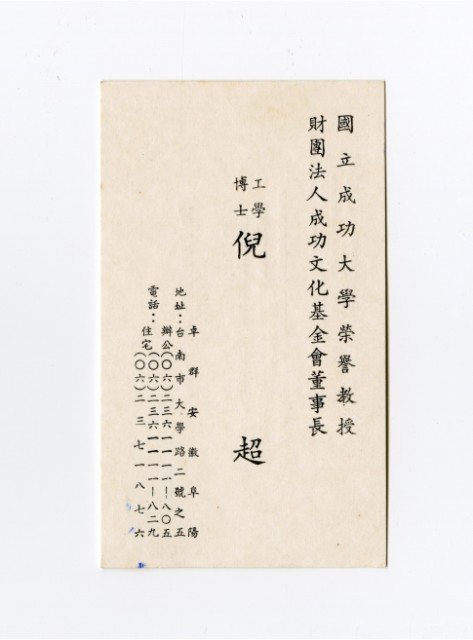 國立成功大學榮譽教授
財團法人成功文化基金會董事長
工學
博士
倪超
卓群 安徽阜陽
地址：台南市大學路二號之五
電話：辦公(〇六)二三六一一一一–八〇五
(〇六)二三六一一一一–八二九
住宅(〇六)二三七一八七六